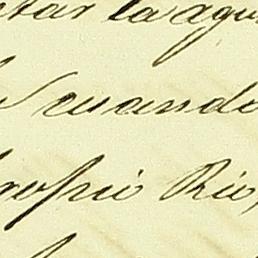 tar la agu
cuando
ropio Rio,